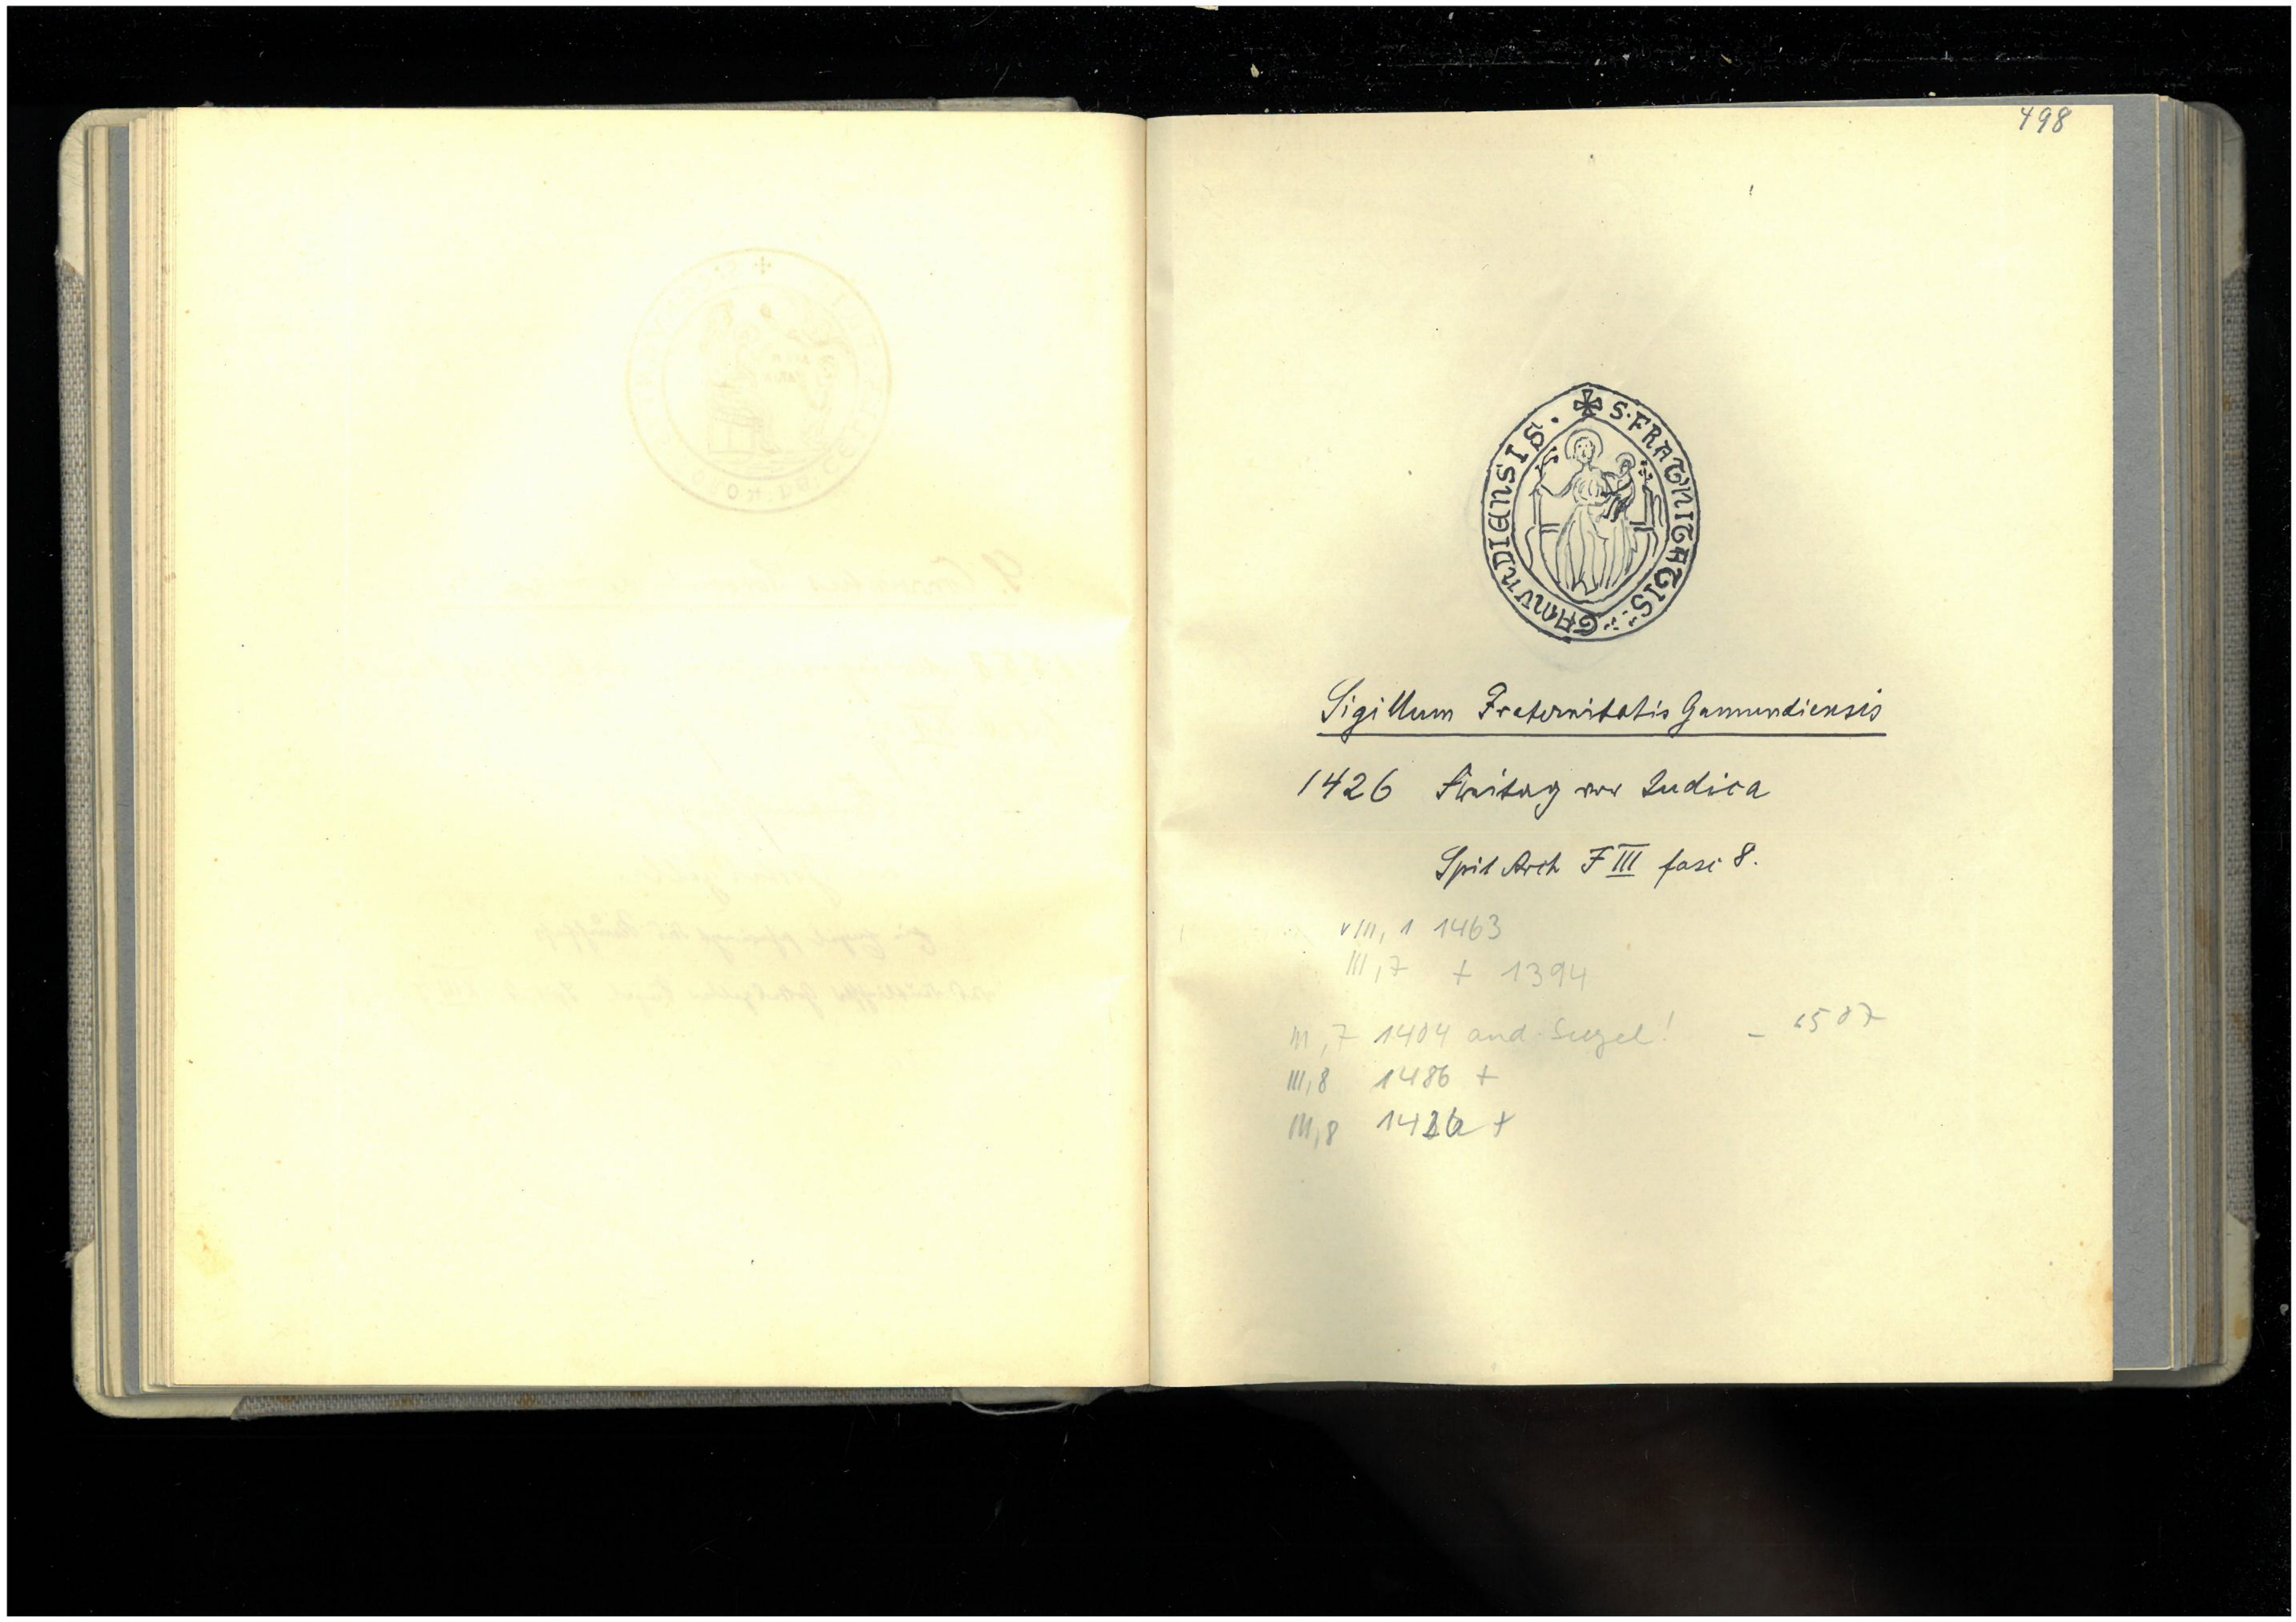 498
✠ S · FRATNITATIS : GAMVNDIENSIS ·
Sigillum Fraternitatis Gamundiensis
1426 Freitag vor Iudica
Spit Arch F III fasc 8.
VIII, 1 1463
III, 7 + 1394
III, 7 1404 and. Siegel! –
III, 8 1486 +
III, 8 +